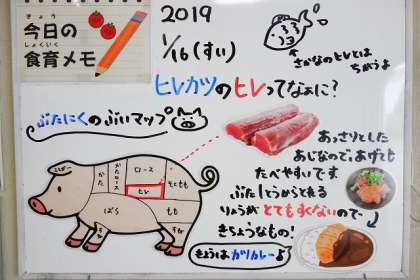 きょう
今日の
しょくいく
食育メモ
2019
1/16(すい)
さかなのヒレとは
ちがうよ
ヒレカツのヒレってなぁに?
ぶたにくのぶいマップ
かた
かたロース
ロース
ヒレ
そともも
ばら
もも
すね
すね
あっさりとした
あじなのであげても
たべやすいです
ぶた1とうからとれる
りょうがとてもすくないので
きちょうなもの!
きょうはカツカレー♪